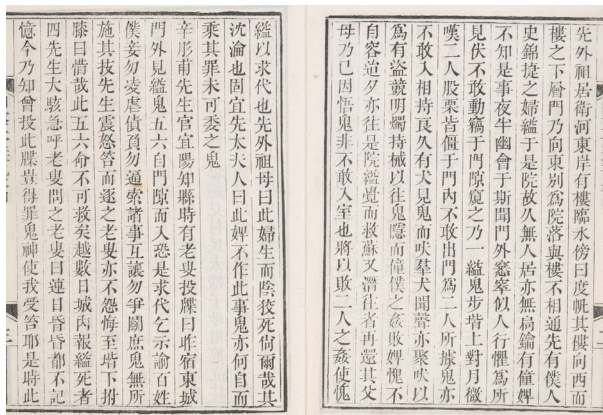 先外祖居衛河東岸有樓臨水傍曰度帆其樓向西而
樓之下層門乃向東別為院落與樓不相通先有僕人
史錦捷之婦縊于是院故久無人居亦無扃鑰有僮婢
不知是事夜半幽會于斯聞門外窸窣似人行懼為所
見伏不敢動竊于門隙窺之乃一縊鬼步堦上對月微
嘆二人股栗皆僵于門內不敢出門為二人所據鬼亦
不敢入相持良久有犬見鬼而吠羣犬聞聲亦聚吠以
為有盜競明燭持械以往鬼隱而僮僕之姦敗婢愧不
自容迨夕亦往是院縊覺而救蘇又潛往者再還其父
母乃已因悟鬼非不敢入室也將以敗二人之姦使愧
縊以求代也先外祖母曰此婦生而陰狡死尚爾哉其
沈淪也固宜先太夫人曰此婢不作此事鬼亦何自而
乘其罪未可委之鬼
辛彤甫先生官宜陽知縣時有老叟投牒曰昨宿東城
門外見縊鬼五六自門隙而入恐是求代乞示諭百姓
僕妾勿凌虐債負勿逼索諸事互讓勿爭鬬庶鬼無所
施其技先生震怒笞而逐之老叟亦不怨悔至堦下拊
膝曰惜哉此五六命不可救矣越數日城內報縊死者
四先生大駭急呼老叟問之老叟曰連日昏昏都不記
憶今乃知曾投此牒豈得罪鬼神使我受笞耶是時此